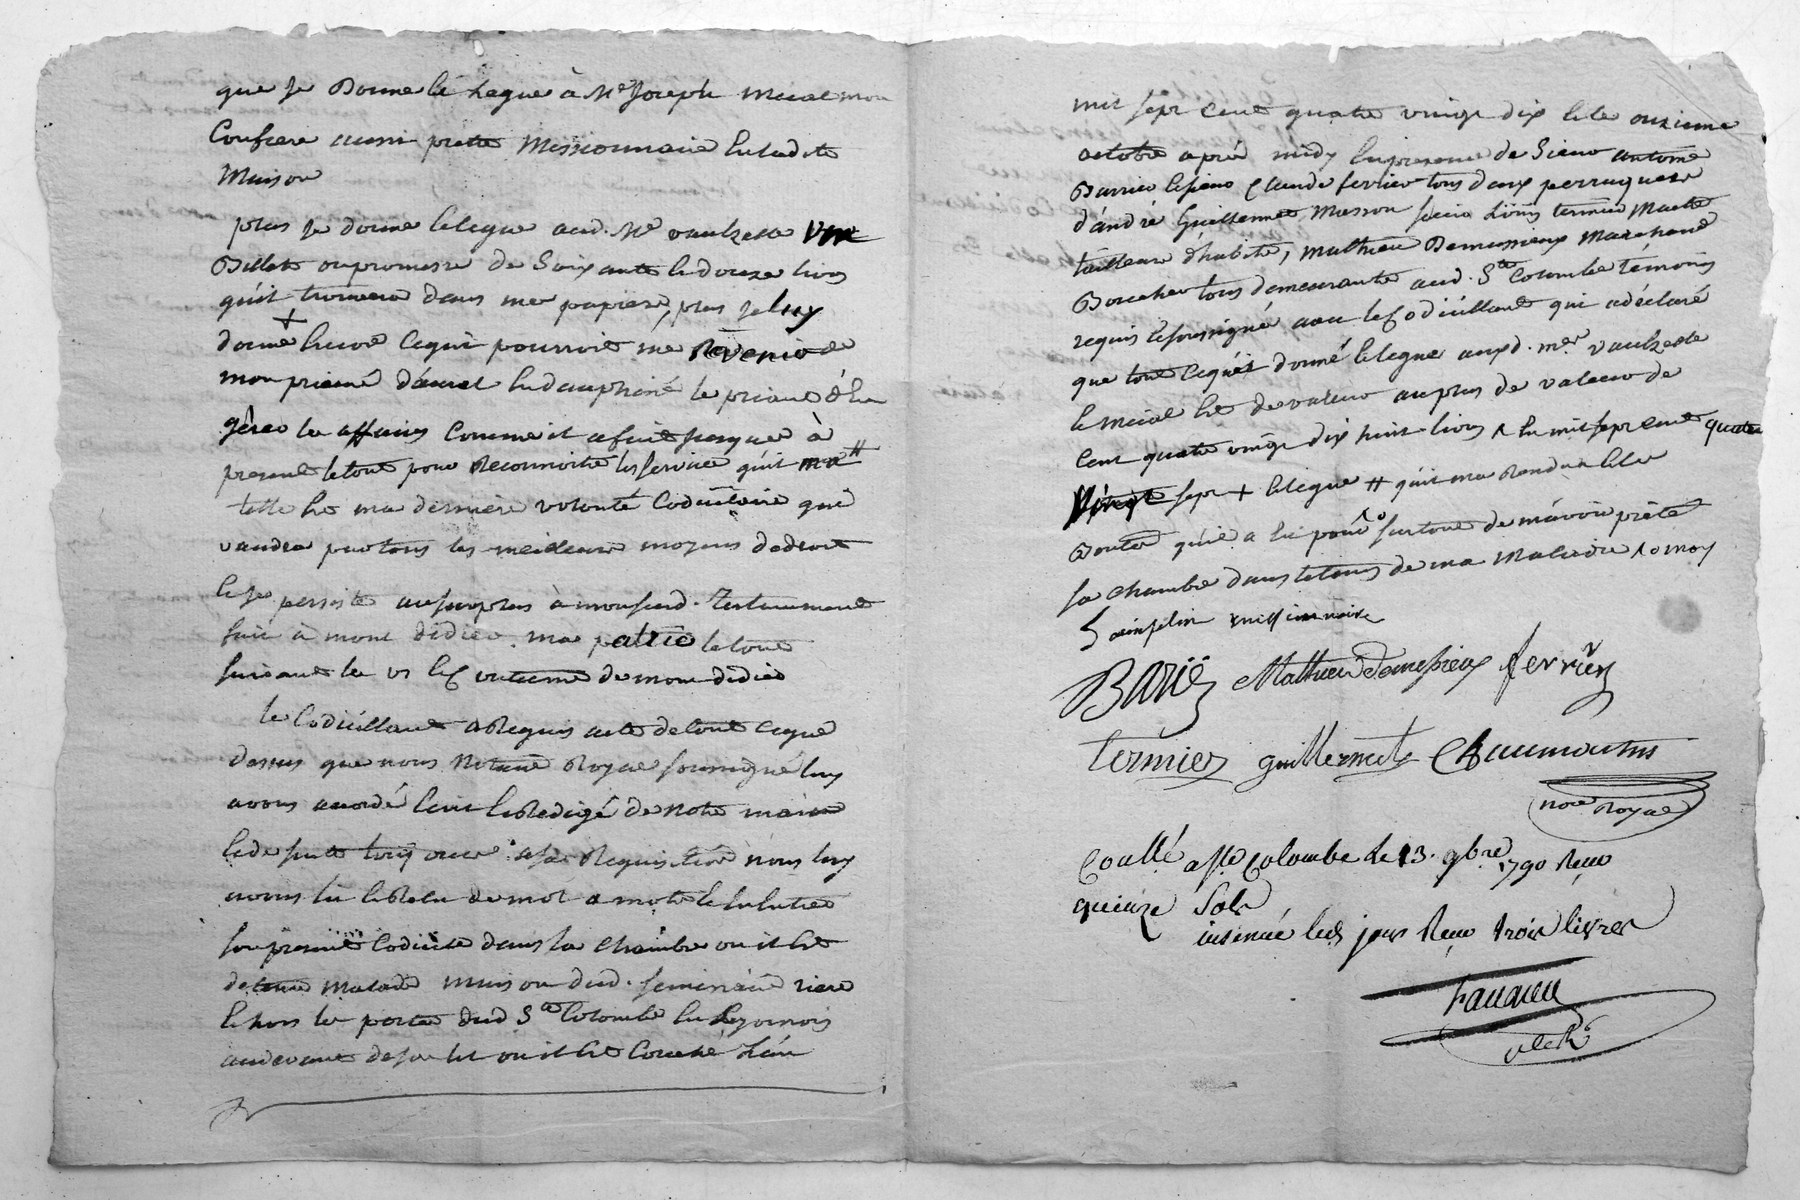 que je donne et legue à Mr Joseph Micial mon
Confrere aussi pretre Missionnaire en ladite
Maison
plus je donne et legue aud. Mr vaulzelle une
Billets ou promesse de Soixante et douze livres
qu'il trouvera dans mes papiers, plus je luy
donne encore ce qui pourroit me Revenir de
mon prieuré d'auxel en dauphiné le priant d'en
gérer les affaires comme il a fait jusques à
present le tout pour Reconnoitre les services qu'il ma #
telle est ma derniere volonté Codicillaire qui
vaudra par tous les meilleurs moyens de droit
et je persiste au surplus à mon susd. Testament
fait à mont didier ma patrie le tout
suivant les us et Coutumes de mont didier
le Codicillant a Requis acte de tout ce que
dessus que nous Notaire Royal soussigné luy
avons accordé Ecrit et Redigé de notre main
et de suite toujours à sa Requisition nous luy
avons lu et Relu de mot à mot et en entier
son present Codicille dans la chambre ou il est
detenu malade maison dud. seminaire riere
et hors les portes dud Ste Colombe en Lyonnois
au devant de son lit ou il est Couché L'an
mil sept cent quatre vingt dix et le onzieme
octobre après midy En presence de Sieur antoine
Barrier et sieur Claude ferrier tous deux perruquiers
d'andré Guillermet Masson sieur Louis termier Maitre
tailleur d'habits, Mathieu Demessieux Marchand
Boucher tous demeurants aud. Ste Colombe témoins
requis et soussignés avec le Codicillant qui a déclaré
que tout ce qu'il donné et legue aux d. mrs vaulzelle
et Micial est de valeur au plus de valeur de
Cent quatre vingt dix huit livres ^ En mil sept cent quatre
Vingt sept + et legue # qu'il ma Rendu et les
Bontés qu'il a eu pour ^o surtout de m'avoir prêté
sa chambre dans le tems de ma Maladie ^o moy
Sainpélin missionnaire
Barié Mathieu Demessieux ferrier
termier guillermet Chaumartin
nore Royal
Coullé a Ste Colombe Le 13. 9bre 1790 Reçu
quinze Sols
insinué led. jour Reçu trois livres